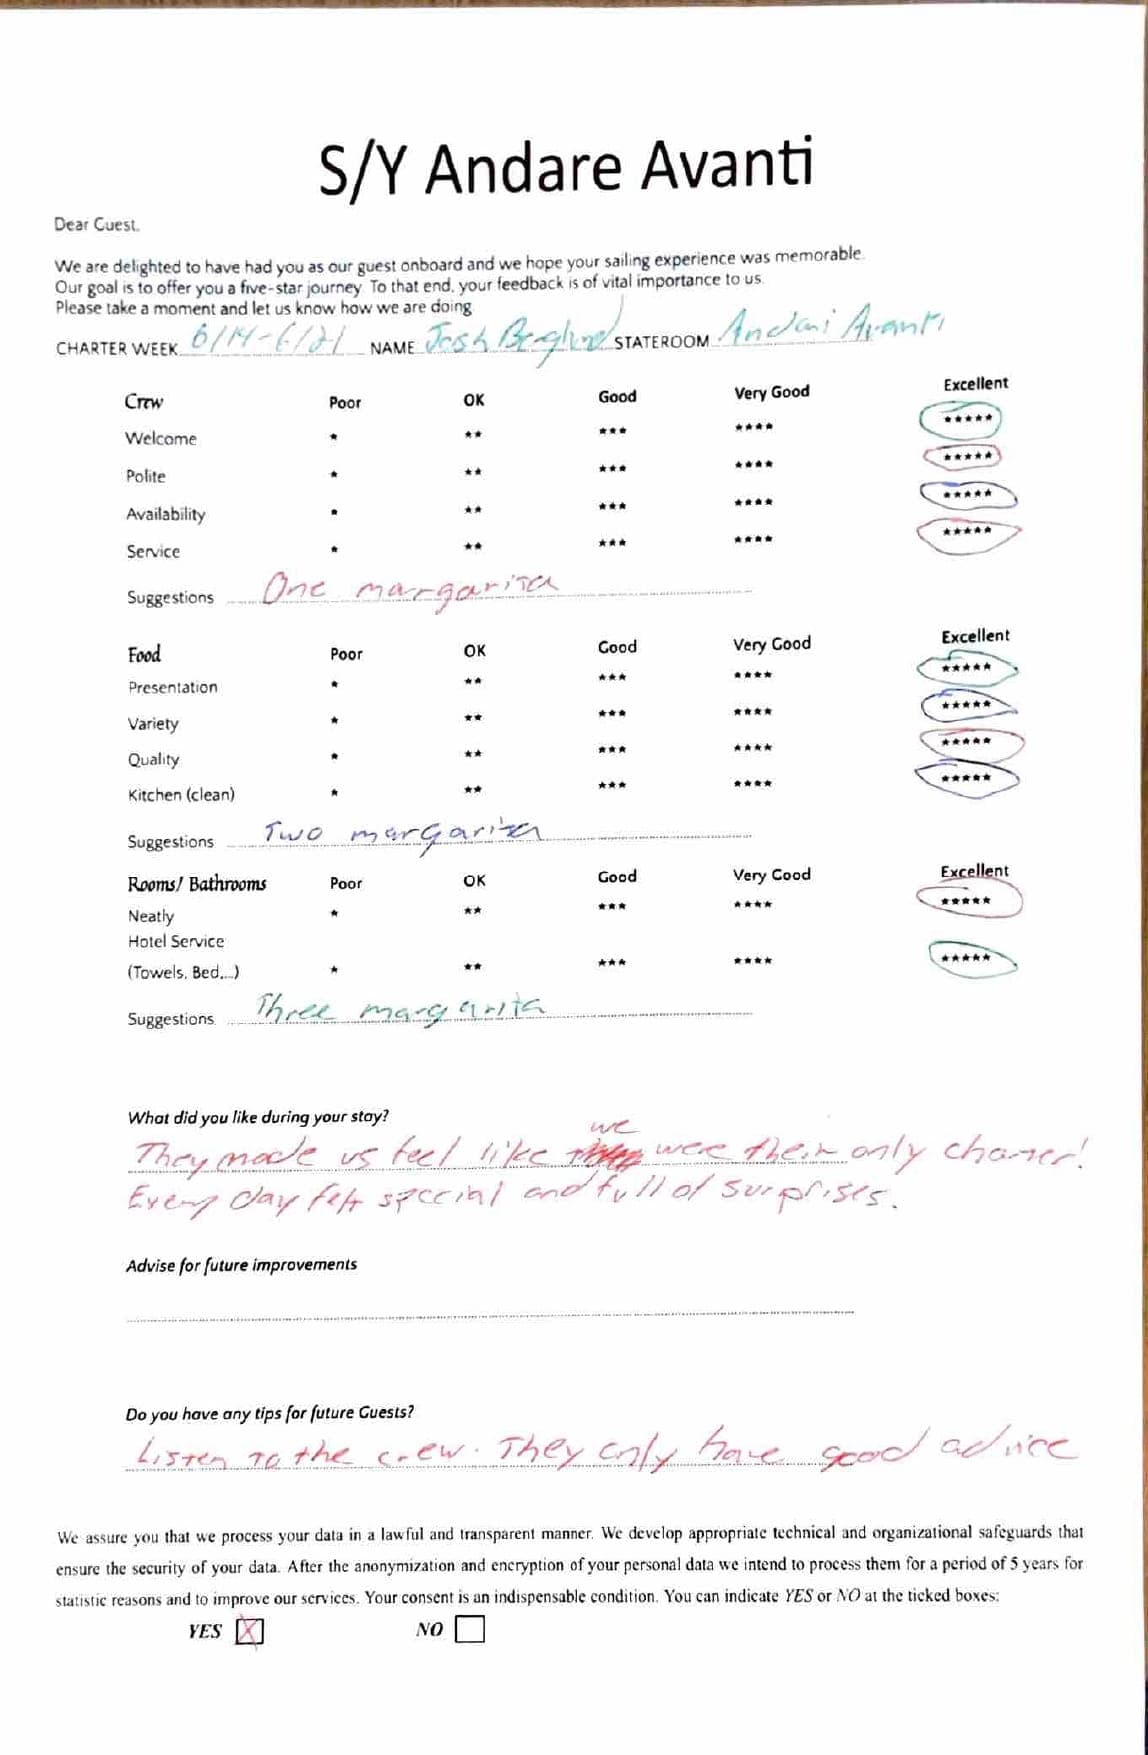 S/Y Andare Avanti
Dear Guest,
We are delighted to have had you as our guest onboard and we hope your sailing experience was memorable.
Our goal is to offer you a five-star journey. To that end, your feedback is of vital importance to us.
Please take a moment and let us know how we are doing
CHARTER WEEK 6/14-6/21 NAME Josh STATEROOM Avanti
Crew Poor OK Good Very Good Excellent
Welcome * ** *** **** *****
Polite * ** *** **** *****
Availability * ** *** **** *****
Service * ** *** **** *****
Suggestions One margarita
Food Poor OK Good Very Good Excellent
Presentation * ** *** **** *****
Variety * ** *** **** *****
Quality * ** *** **** *****
Kitchen (clean) * ** *** **** *****
Suggestions Two margarita
Rooms/ Bathrooms Poor OK Good Very Good Excellent
Neatly * ** *** **** *****
Hotel Service
(Towels, Bed,...) * ** *** **** *****
Suggestions Three margarita
What did you like during your stay?
They made us feel like we were their only charter!
Every day felt special and full of surprises.
Advise for future improvements
Do you have any tips for future Guests?
Listen to the crew. They only have good advice
We assure you that we process your data in a lawful and transparent manner. We develop appropriate technical and organizational safeguards that
ensure the security of your data. After the anonymization and encryption of your personal data we intend to process them for a period of 5 years for
statistic reasons and to improve our services. Your consent is an indispensable condition. You can indicate YES or NO at the ticked boxes:
YES X NO